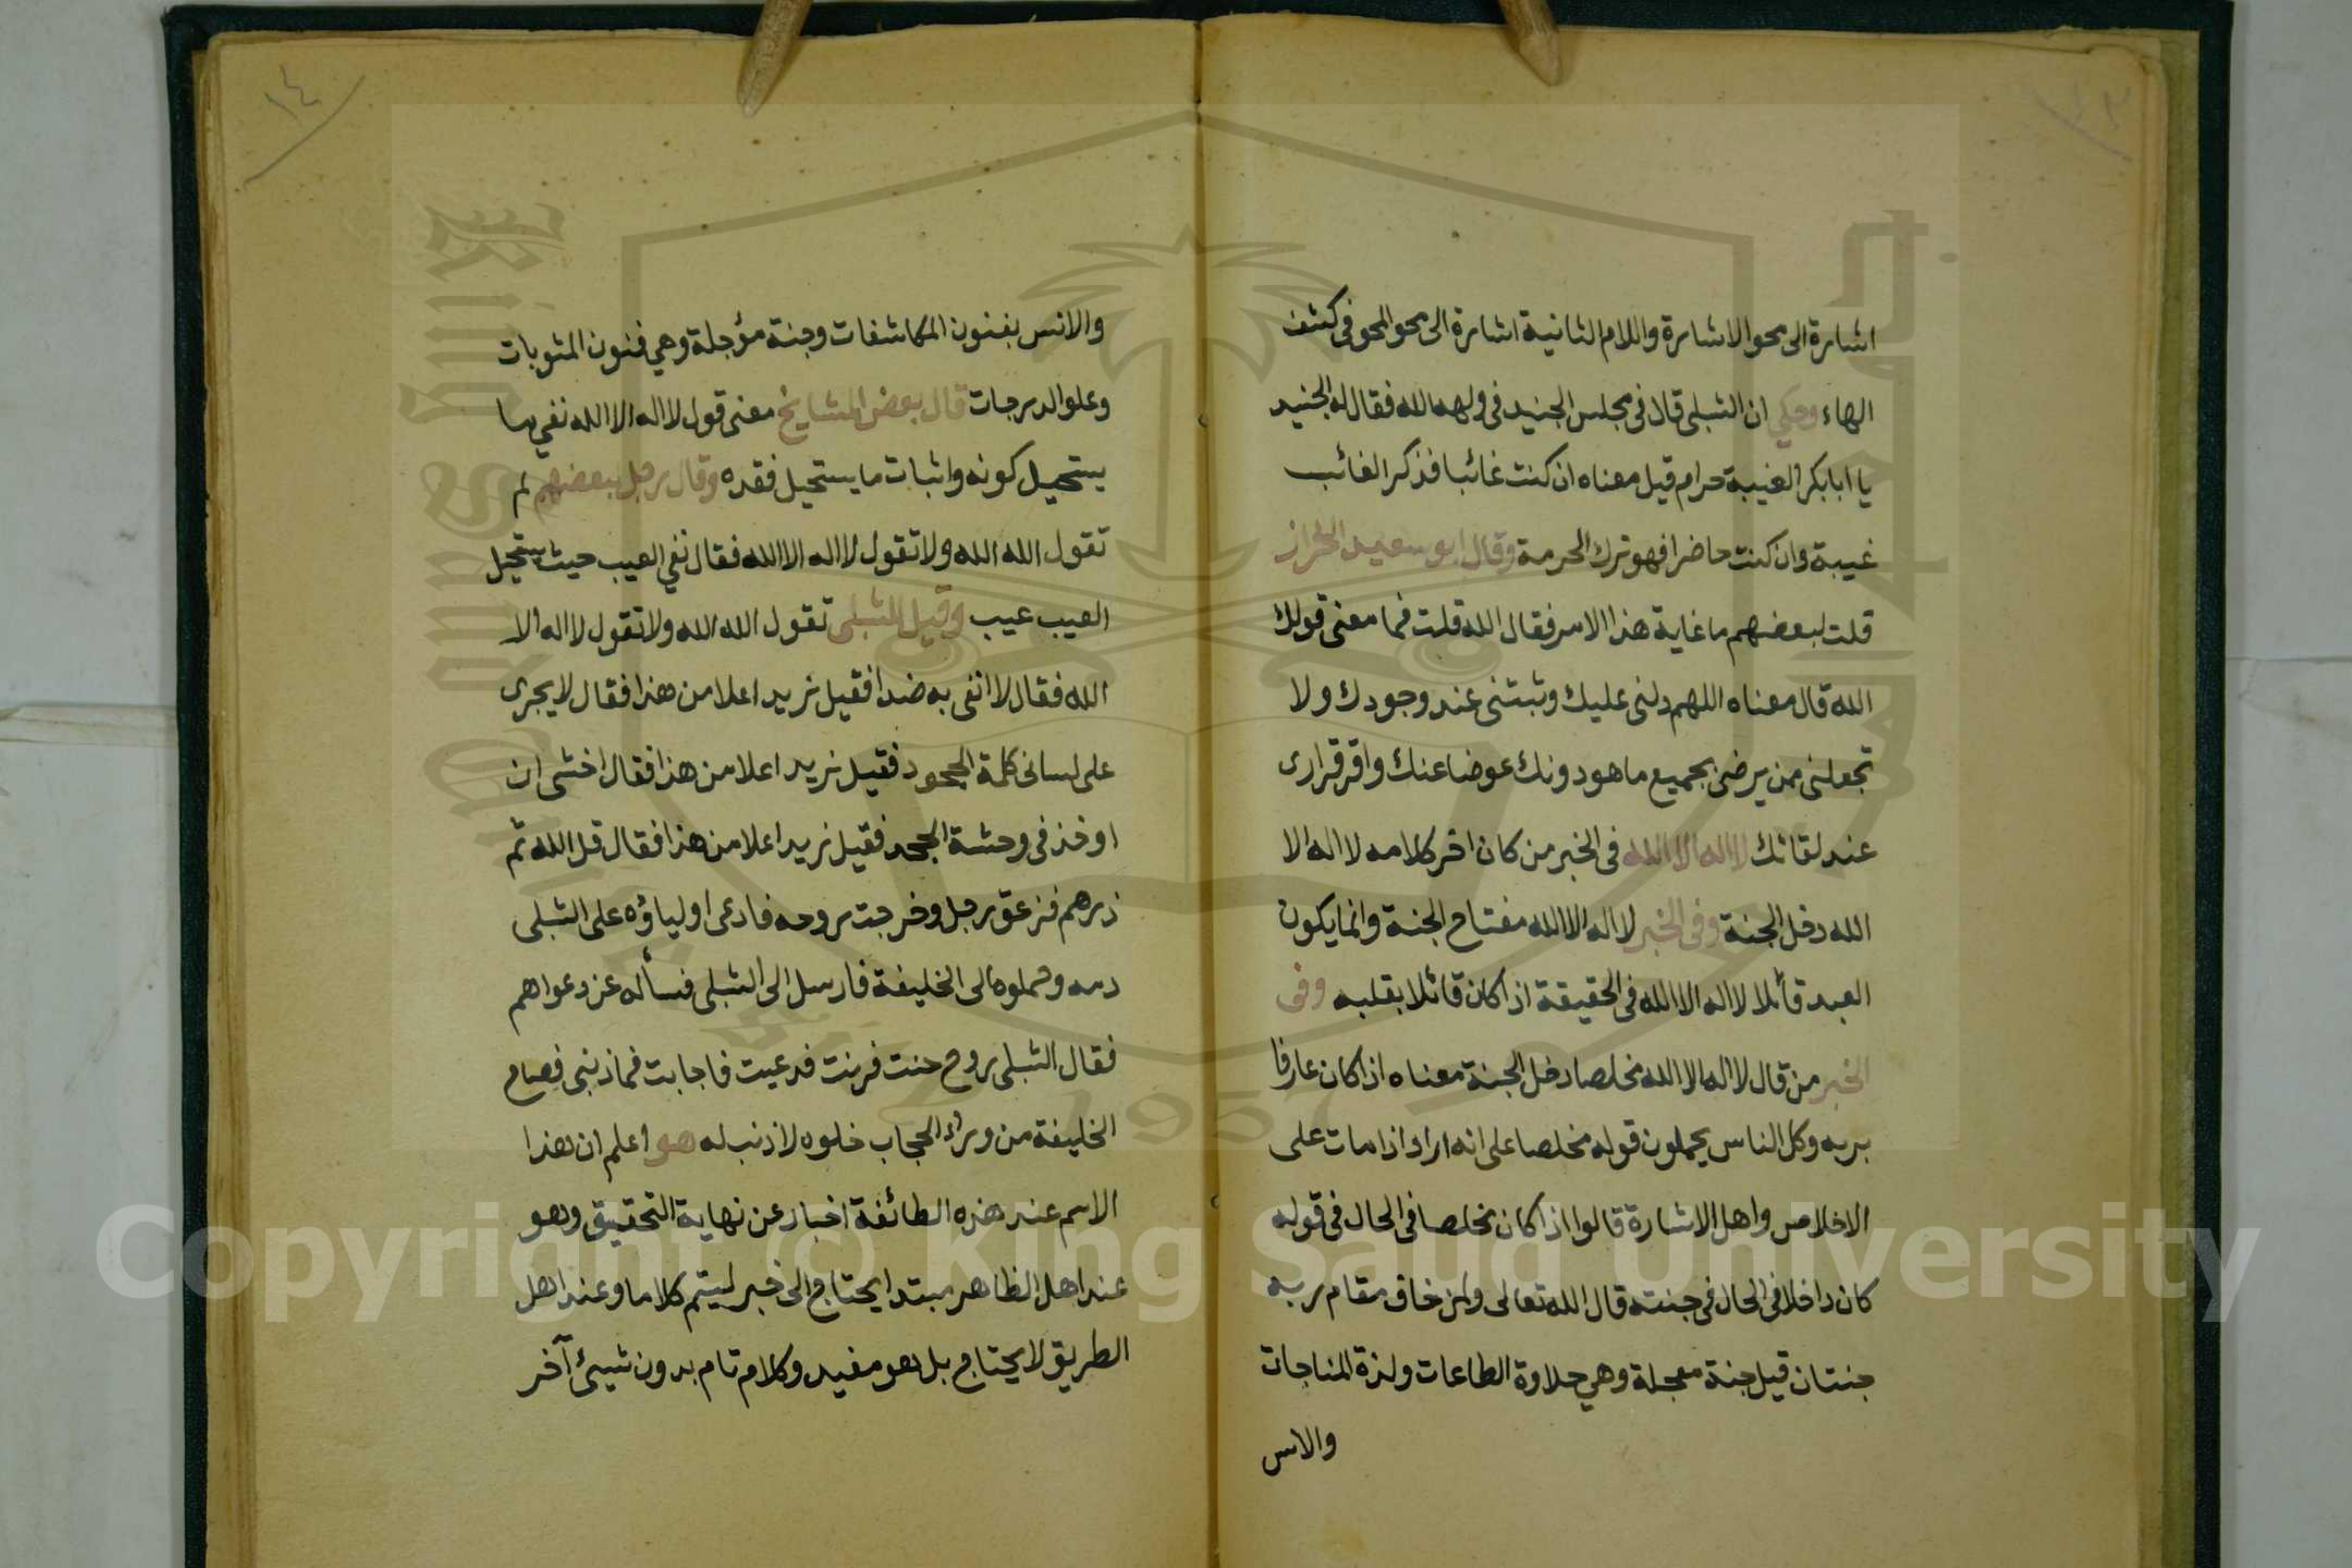 اشارة الى محو الاشارة واللام الثانية اشارة الى محو المحو فى كشف
الهاء وحكي ان الشبلى قال فى مجلس الجنيد فى ولهه الله فقال له الجنيد
يا ابا بكر الغيبة حرام قيل معناه ان كنت غائبا فذكر الغائب
غيبة وان كنت حاضرا فهو ترك الحرمة وقال ابو سعيد الخراز
قلت لبعضهم ما غاية هذا الامر فقال الله قلت فما معنى قولك
الله قال معناه اللهم دلنى عليك وثبتنى عند وجودك ولا
تجعلنى ممن يرضى بجميع ما هو دونك عوضا عنك واقر قرارى
عند لقائك لا اله الا الله فى الخبر من كان اخر كلامه لا اله الا
الله دخل الجنة وفى الخبر لا اله الا الله مفتاح الجنة وانما يكون
العبد قائلا لا اله الا الله فى الحقيقة اذا كان قائلا بقلبه وفى
الخبر من قال لا اله الا الله مخلصا دخل الجنة معناه اذا كان عارفا
بربه وكل الناس يحملون قوله مخلصا على انه اراد اذا مات على
الاخلاص واهل الاشارة قالوا اذا كان مخلصا فى الحال فى قوله
كان داخلا فى الحال فى جنته قال الله تعالى ولمن خاف مقام ربه
جنتان قيل جنة معجلة وهي حلاوة الطاعات ولذة المناجات
والانس
١٤
والانس بفنون المكاشفات وجنة مؤجلة وهي فنون المثوبات
وعلو الدرجات قال بعض المشايخ معنى قول لا اله الا الله نفي ما
يستحيل كونه واثبات ما يستحيل فقده وقال رجل لبعضهم لم
تقول الله الله ولا تقول لا اله الا الله فقال نفي العيب حيث يستحيل
العيب عيب وقيل للشبلى تقول الله الله ولا تقول لا اله الا
الله فقال لا انفى به ضدا فقيل نريد اعلا من هذا فقال لا يجرى
على لسانى كلمة الجحود فقيل نريد اعلا من هذا فقال اخشى ان
اوخذ فى وحشة الجحد فقيل نريد اعلا من هذا فقال قل الله ثم
ذرهم فزعق رجل وخرجت روحه فادعى اولياؤه على الشبلى
دمه وحملوه الى الخليفة فارسل الى الشبلى فسأله عن دعواهم
فقال الشبلى روح حنت فرنت فدعيت فاجابت فما ذنبى فصاح
الخليفة من وراء الحجاب خلوه لا ذنب له هو اعلم ان هذا
الاسم عند هذه الطائفة اخبار عن نهاية التحقيق وهو
عند اهل الظاهر مبتدا يحتاج الى خبر ليتم كلاما وعند اهل
الطريق لا يحتاج بل هو مفيد وكلام تام بدون شيئ آخر
Copyright © King Saud University
1957